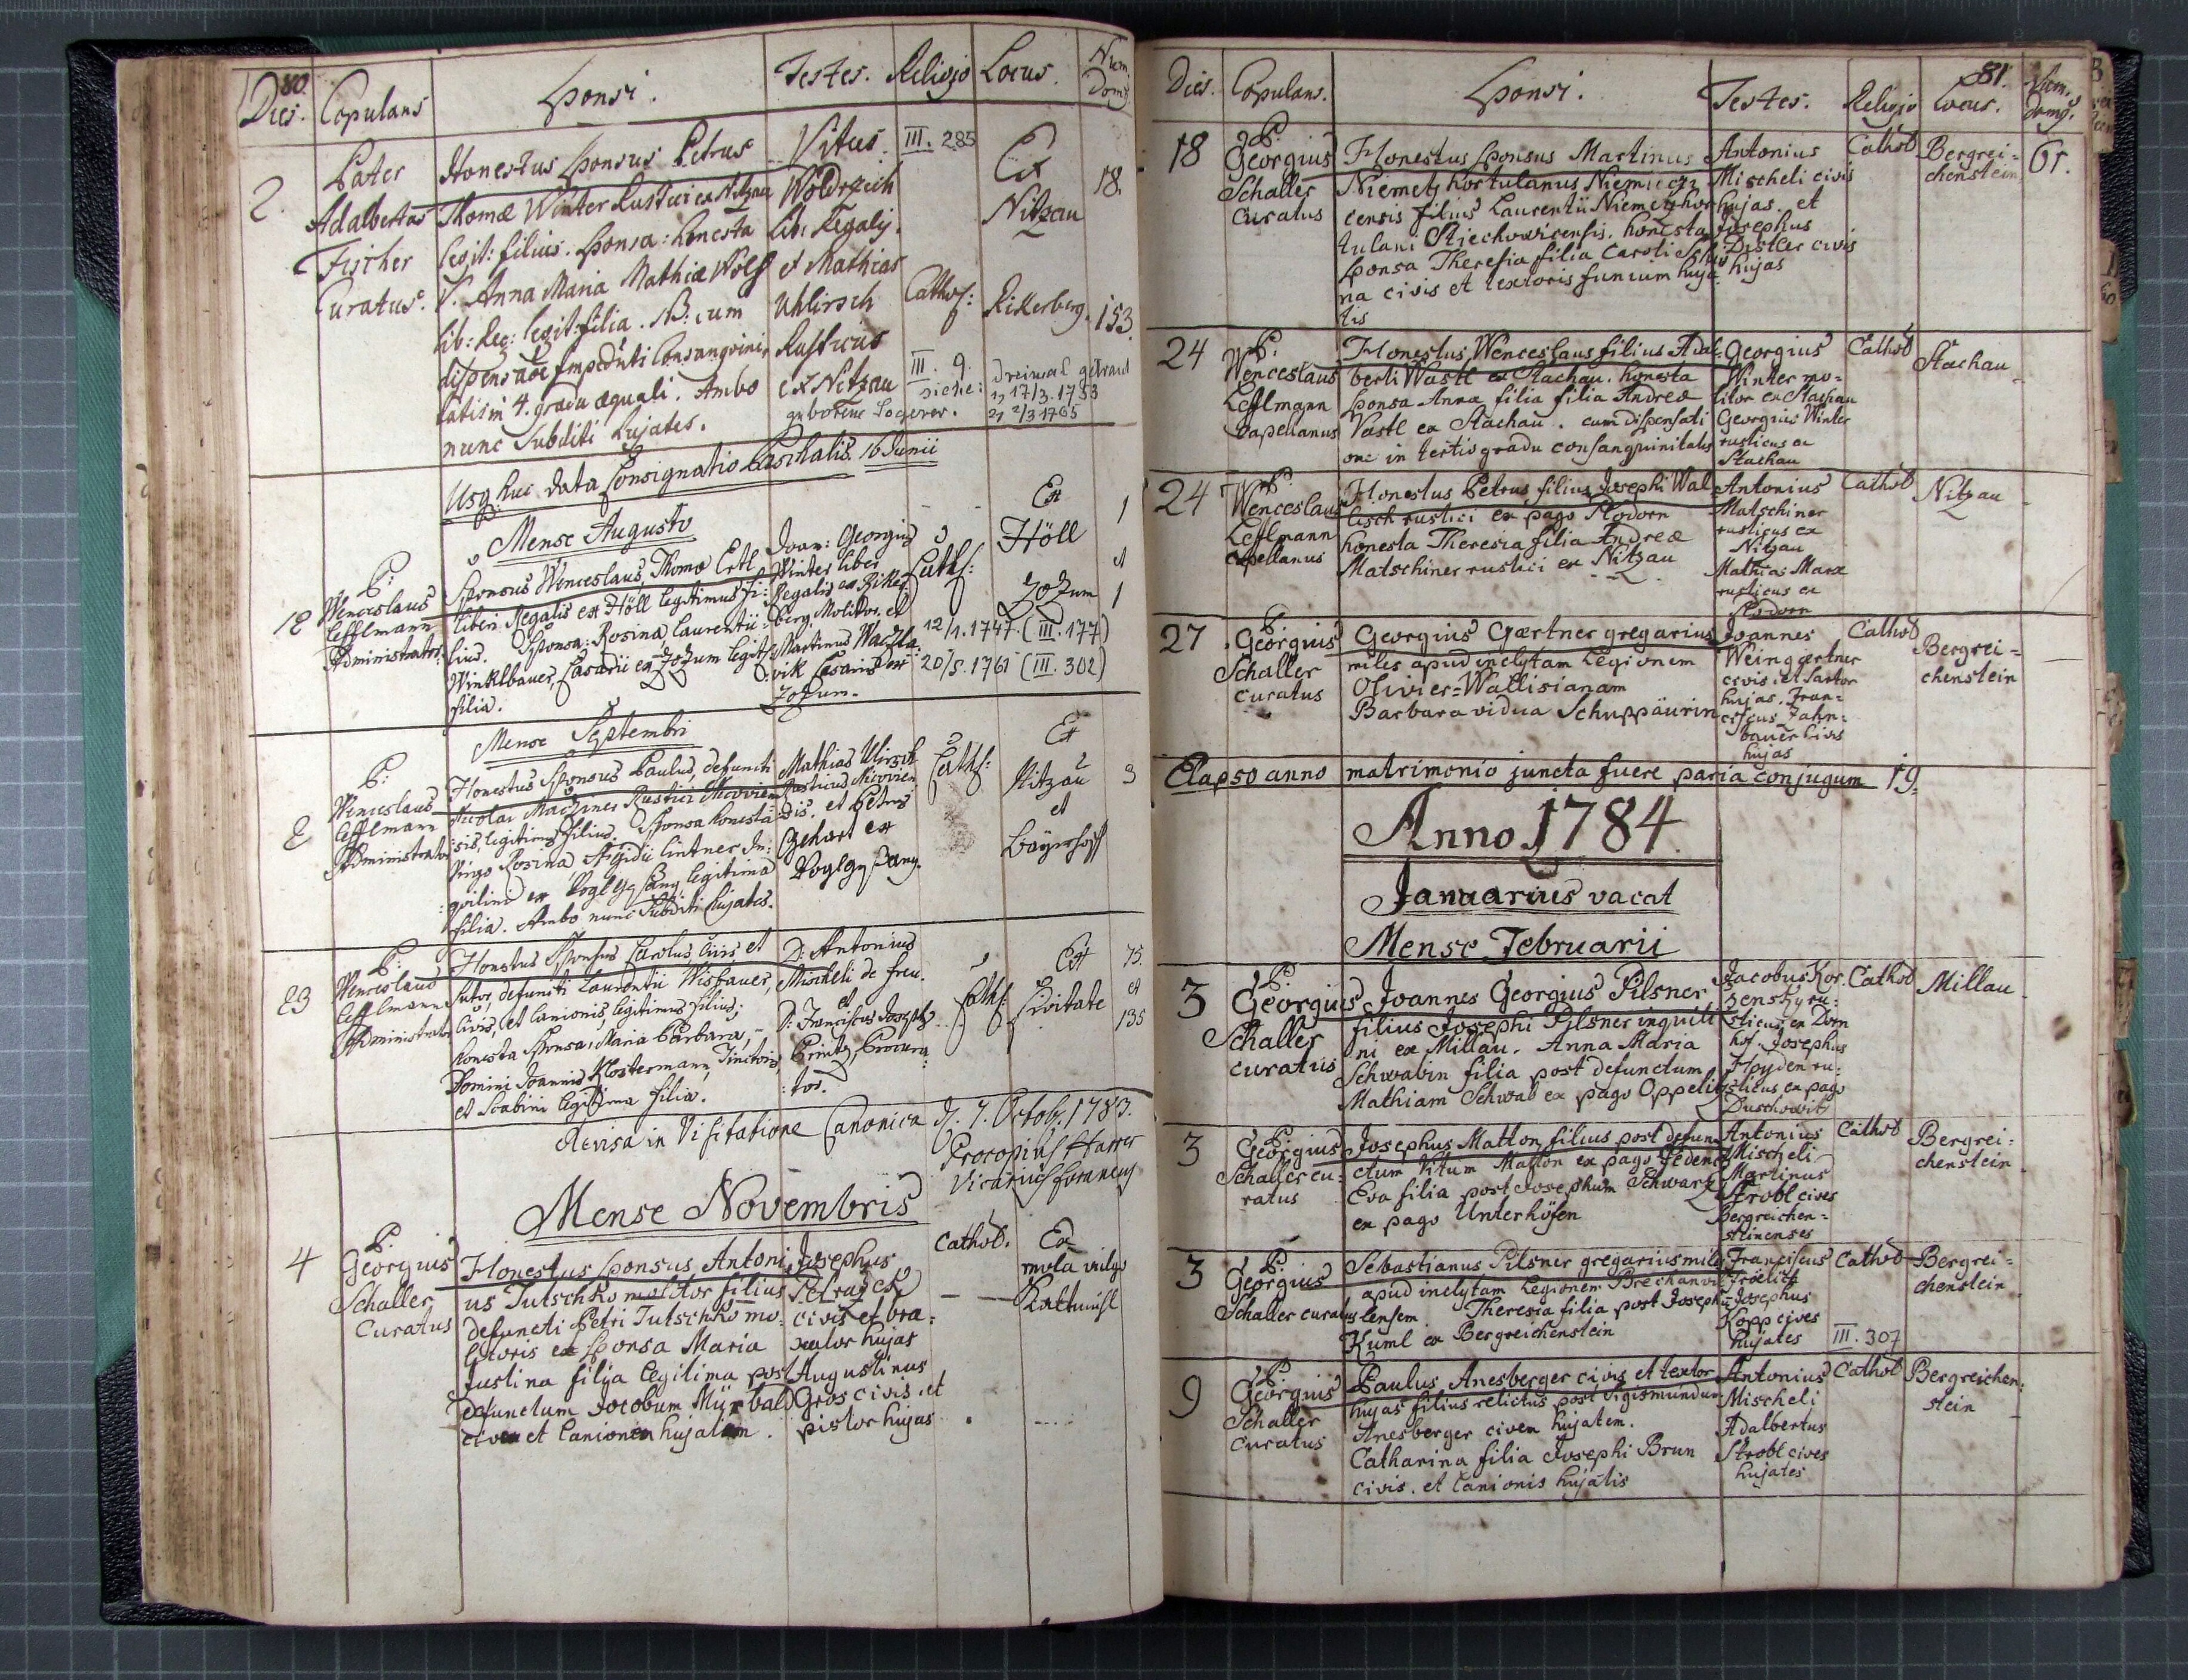 80.
Dies. Copulans Sponsi. Testes. Religio Locus. Num. Dom9
2. Pater Adalbertus Fischer Curatus.
Honestus Sponsus Petrus
Thomæ Winter Rustici ex Nitzau
legit: filius. Sponsa: honesta
V. Anna Maria Mathiæ Wolf
lib: Reg: legit: filia. NB: cum
latis in 4. gradu æquali. Ambo
nunc Subditi hujates.
Vitus
Woldrzich
lib: Regalis.
et Mathias
Uhlirsch
Rusticus
ex Nitzau
III. 285
Cathol:
III. 9.
siehe:
geborene
Ex
Nitzau
Rikerberg.
dreimal getraut
1) 17/3. 1753
2) 2/3 1765
18.
153
Usq huc data Consignatio Paschalis. 16 Junii
Mense Augusto
12 P: Wenceslaus Lefflmann Administrator.
Sponsus Wenceslaus, Thomæ Ertl
liberi Regalis ex Höll legitimus fi:
lius. Sponsa: Rosina Laurentii
Winklbauer, Casarii ex Zozum legit:
filia.
Joan: Georgius
Winter liber
Regalis ex Riker:
berg, Molitor. et
Martinus Waczla:
vik Casarius ex
Zozum.
Cath:
12/1. 1747. (III. 177)
20/5. 1761 (III. 302)
Ex
Höll
et
Zozum
1
1
Mense Septembri
2 P: Wenceslaus Lefflmann Administrator
Honestus Sponsus Paulus, defuncti
Nicolai Maczner Rustici
sis, legitimus filius. Sponsa honesta
Virgo Rosina, Ægidii Lintner In:
:quilini ex Voglgsang legitima
filia. Ambo nunc Subditi hujates.
Mathias Ulirsch
Rusticus
sis, et Petrus
Gehart ex
Voglgsang.
Cath:
Ex
Nitzau
et
Bayrhoff
3
23 P: Wenceslaus Lefflmann Administrator
Honestus Sponsus Carolus, Civis et
Sutor, defuncti Laurentii Wisbauer,
Civis, et Lanionis, legitimus filius;
honesta Sponsa, Maria Barbara,
Domini Joannis Klostermann, Tinctoris,
et Scabini legitima filia.
D: Antonius
Mischeli de Freu.
et
D: Franciscus Joseph9
Printz, Procura
:tor.
Cath:
Ex
Civitate
75.
et
135
Revisa in Visitatione Canonica d. 7. Octob: 1783.
Procopius Harrer
Vicarius foraneus
Mense Novembris
4 P. Georgius Schaller Curatus
Honestus Sponsus Antoni
us Tutschko molitor filius
defuncti Petri Tutschko mo:
litoris ex Sponsa Maria
Justina filia legitima post
defunctum Jacobum Mürbald
civem et Lanionem hujatem.
Josephus
civis et bra:
xator hujas
Augustinus
Gros civis, et
pistor hujas
Cathol.
Ex
mola vulgo
Kaltmühl
81.
Dies. Copulans. Sponsi. Testes. Religio Locus. Num. dom9.
18 P. Georgius Schaller Curatus
Honestus Sponsus Martinus
Niemetz hortulanus Niemiczi
censis filius Laurentii Niemetz hor
tulani Stiechowicensis. honesta
Sponsa Theresia filia Caroli
na civis et textoris funium huja
tis
Antonius
Mischeli civis
hujas. et
Josephus
Distler civis
hujas
Cathol
Bergrei=
chenstein
61.
24 P: Wenceslaus Lefflmann Capellanus
Honestus Wenceslaus filius Adal:
berti Wastl ex Stachau. honesta
Sponsa Anna filia filia Andreæ
Vastl ex Stachau. cum dispensati
one in tertio gradu consanguinitatis
Georgius
Winter mo=
litor ex Stachau
Georgius Winter
rusticus ex
Stachau
Cathol
Stachau
24 P: Wenceslaus Lefflmann Capellanus
Honestus Petrus filius Josephi Wal=
lisch rustici ex pago Rodorn
honesta Theresia filia Andreæ
Matschiner rustici ex Nitzau
Antonius
Matschiner
rusticus ex
Nitzau
Mathias Marx
rusticus ex
Rodorn
Cathol
Nitzau
27 P. Georgius Schaller curatus
Georgius Gærtner gregarius
miles apud inclytam Legionem
Olivier=Wallisianam
Barbara vidua Schuppäurin
Joannes
Weingærtner
civis et Sartor
hujas. Fran=
ciscus Jahn=
bauer civis
hujas
Cathol
Bergrei=
chenstein
Elapso anno matrimonio juncta fuere paria conjugum 19.
Anno 1784.
Januarius vacat
Mense Februarii
3 P: Georgius Schaller curatus
Joannes Georgius Pilsner
filius Josephi Pilsner inquili
ni ex Millau. Anna Maria
Schwabin filia post defunctum
Mathiam Schwab ex pago Oppelitz
Jacobus Kor.
zensky ru:
sticus ex Dorn
hof. Josephus
Hayden ru:
sticus ex pago
Duschowitz
Cathol
Millau
3 P: Georgius Schaller cu: ratus
Josephus Matton filius post defun
ctum Vitum Matton ex pago Jedenetz
Eva filia post Josephum Schwartz
ex pago Unterhöfen
Antonius
Mischeli
Martinus
Strobl cives
Bergreichen=
steinenses
Cathol
Bergrei=
chenstein
3 P: Georgius Schaller curatus
Sebastianus Pilsner gregarius miles
apud inclytam Legionem Brechanvil
lensem Theresia filia post Josephu
Kuml ex Bergreichenstein
Franciscus
Fröelich
Josephus
Kopp cives
hujates
Cathol
III. 307
Bergrei=
chenstein
9 P: Georgius Schaller curatus
Paulus Anesberger civis et textor
hujas filius relictus post Sigismundum
Anesberger civem hujatem.
Catharina filia Josephi Brun
civis. et Lanionis hujatis
Antonius
Mischeli
Adalbertus
Strobl cives
hujates
Cathol
Bergreichen=
stein